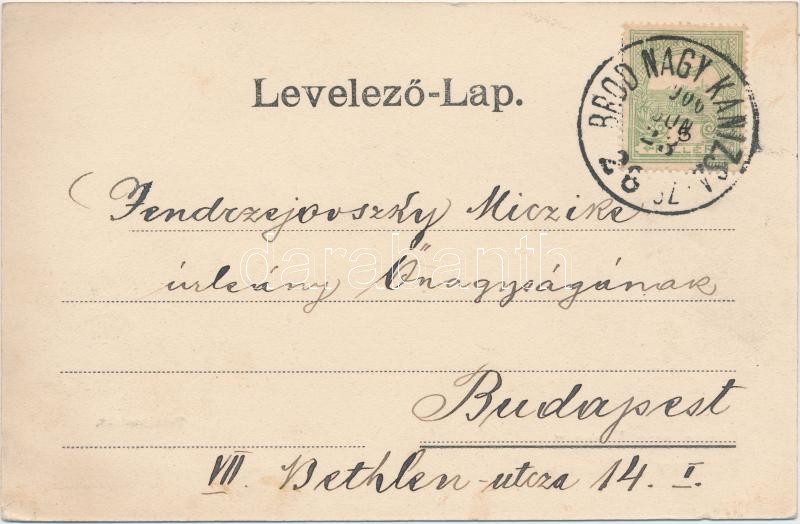 Levelező-Lap.
BROD NAGY KANIZSA
906 JUN
28
Jendrzejovszky Miczike
darabanth
úrleány Őnagyságának
Budapest
VII. Bethlen-utcza 14. I.